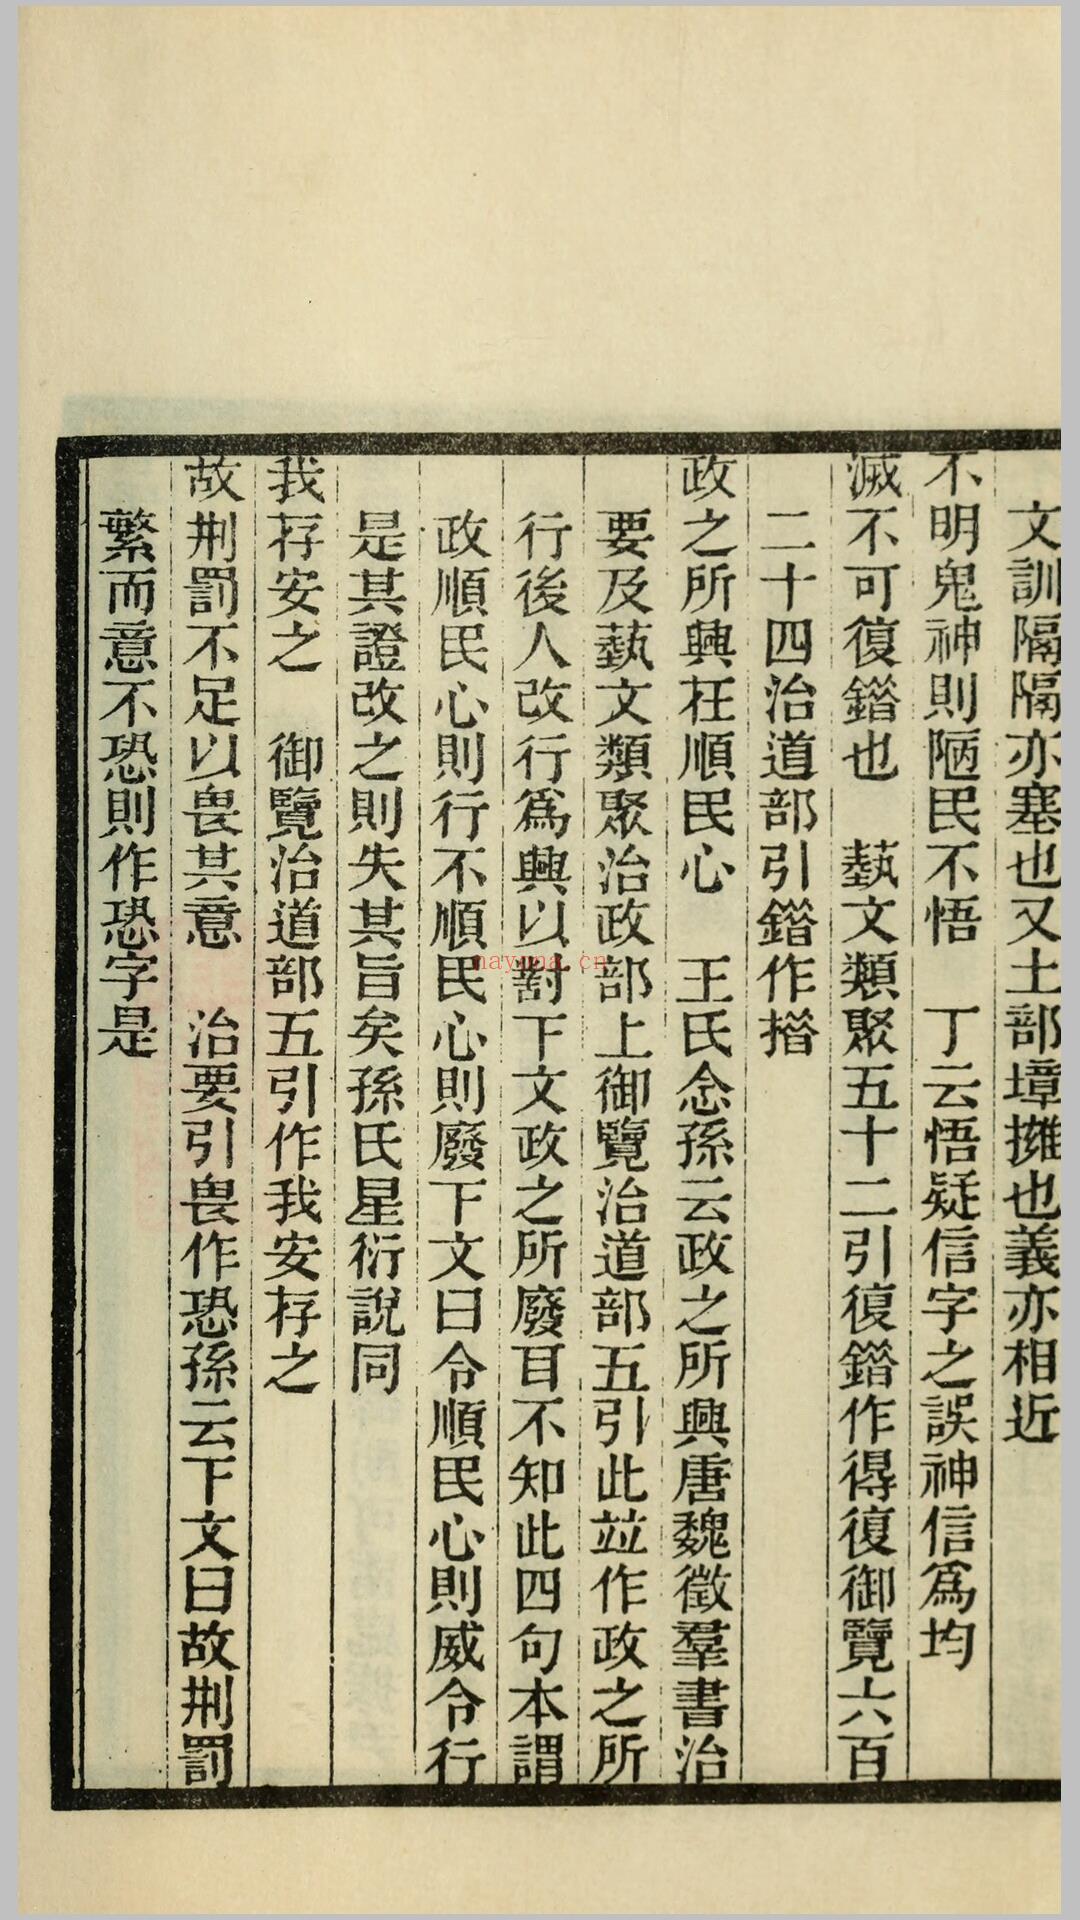 文訓隔隔亦塞也又土部墇擁也義亦相近
不明鬼神則陋民不悟　丁云悟疑信字之誤神信爲均
滅不可復錯也　藝文類聚五十二引復錯作得復御覽六百
二十四治道部引錯作措
政之所興在順民心　王氏念孫云政之所興唐魏徵羣書治
要及藝文類聚治政部上御覽治道部五引此竝作政之所
行後人改行爲興以對下文政之所廢耳不知此四句本謂
政順民心則行不順民心則廢下文曰令順民心則威令行
是其證改之則失其旨矣孫氏星衍說同
我存安之　御覽治道部五引作我安存之
故荆罰不足以畏其意　治要引畏作恐孫云下文曰故荆罰
繁而意不恐則作恐字是
nayona.cn